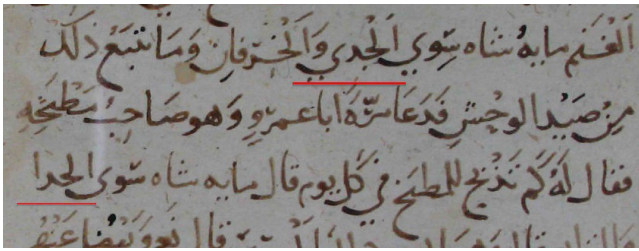 الغنم مايه شاه سوي الجدي والخرفان وما تتبع ذلك
من صيد الوحش فدعا سرّه ابا عمرو وهو صاحب مطبخه
فقال له كم تذبح للمطبخ في كل يوم قال مايه شاه سوى الجدا